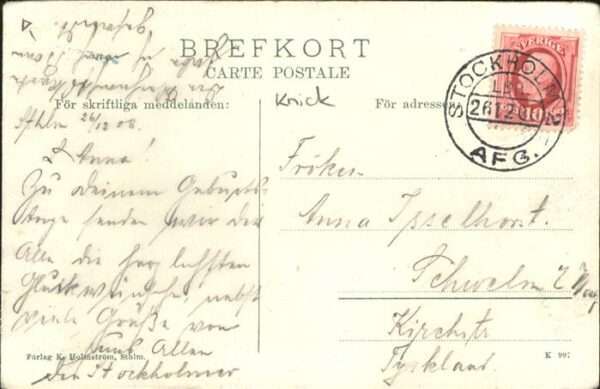 BREFKORT
CARTE POSTALE
För skriftliga meddelanden:
Knick
För adressen
SVERIGE
10
STOCKHOLM 2
26 12
AFG.
Sthlm 26/12 08.
L. Anna!
Zu deinem Geburts-
tage senden wir dir
Alle die herzlichsten
Glückwünsche, nebst
viele Grüße von
uns Allen
Die Stockholmer
Fröken
Anna Isselhorst.
Schwelm
Kirchstr
Tyskland.
Förlag K. Holmström, Sthlm.
K 997